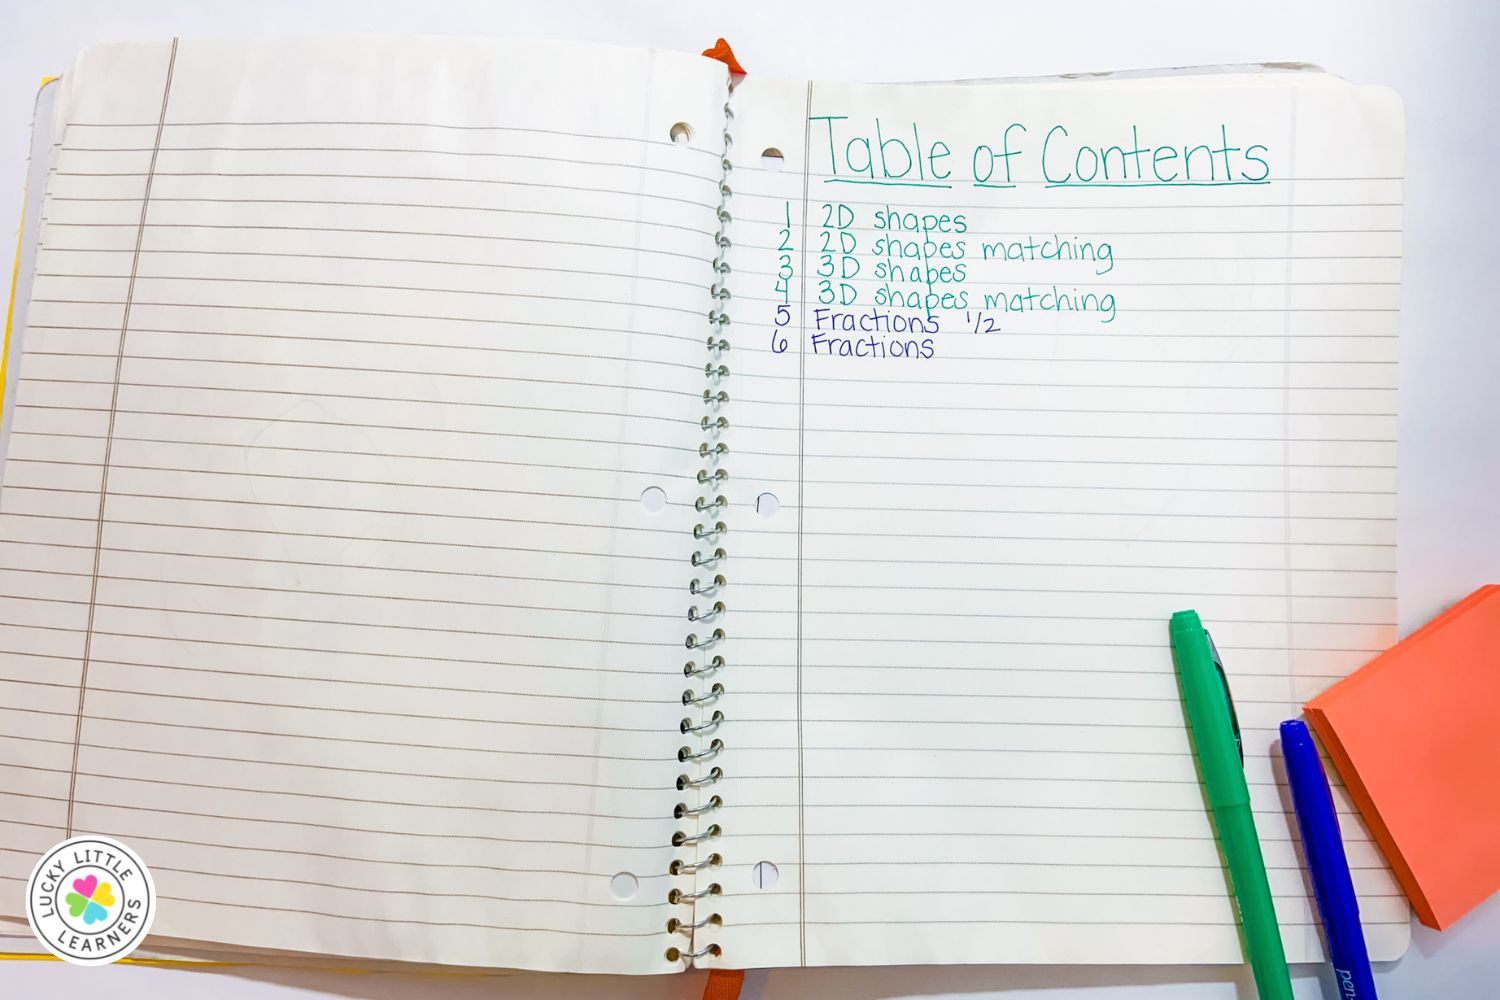 Table of Contents
1 2D shapes
2 2D shapes matching
3 3D shapes
4 3D shapes matching
5 Fractions 1/2
6 Fractions
LUCKY LITTLE
LEARNERS